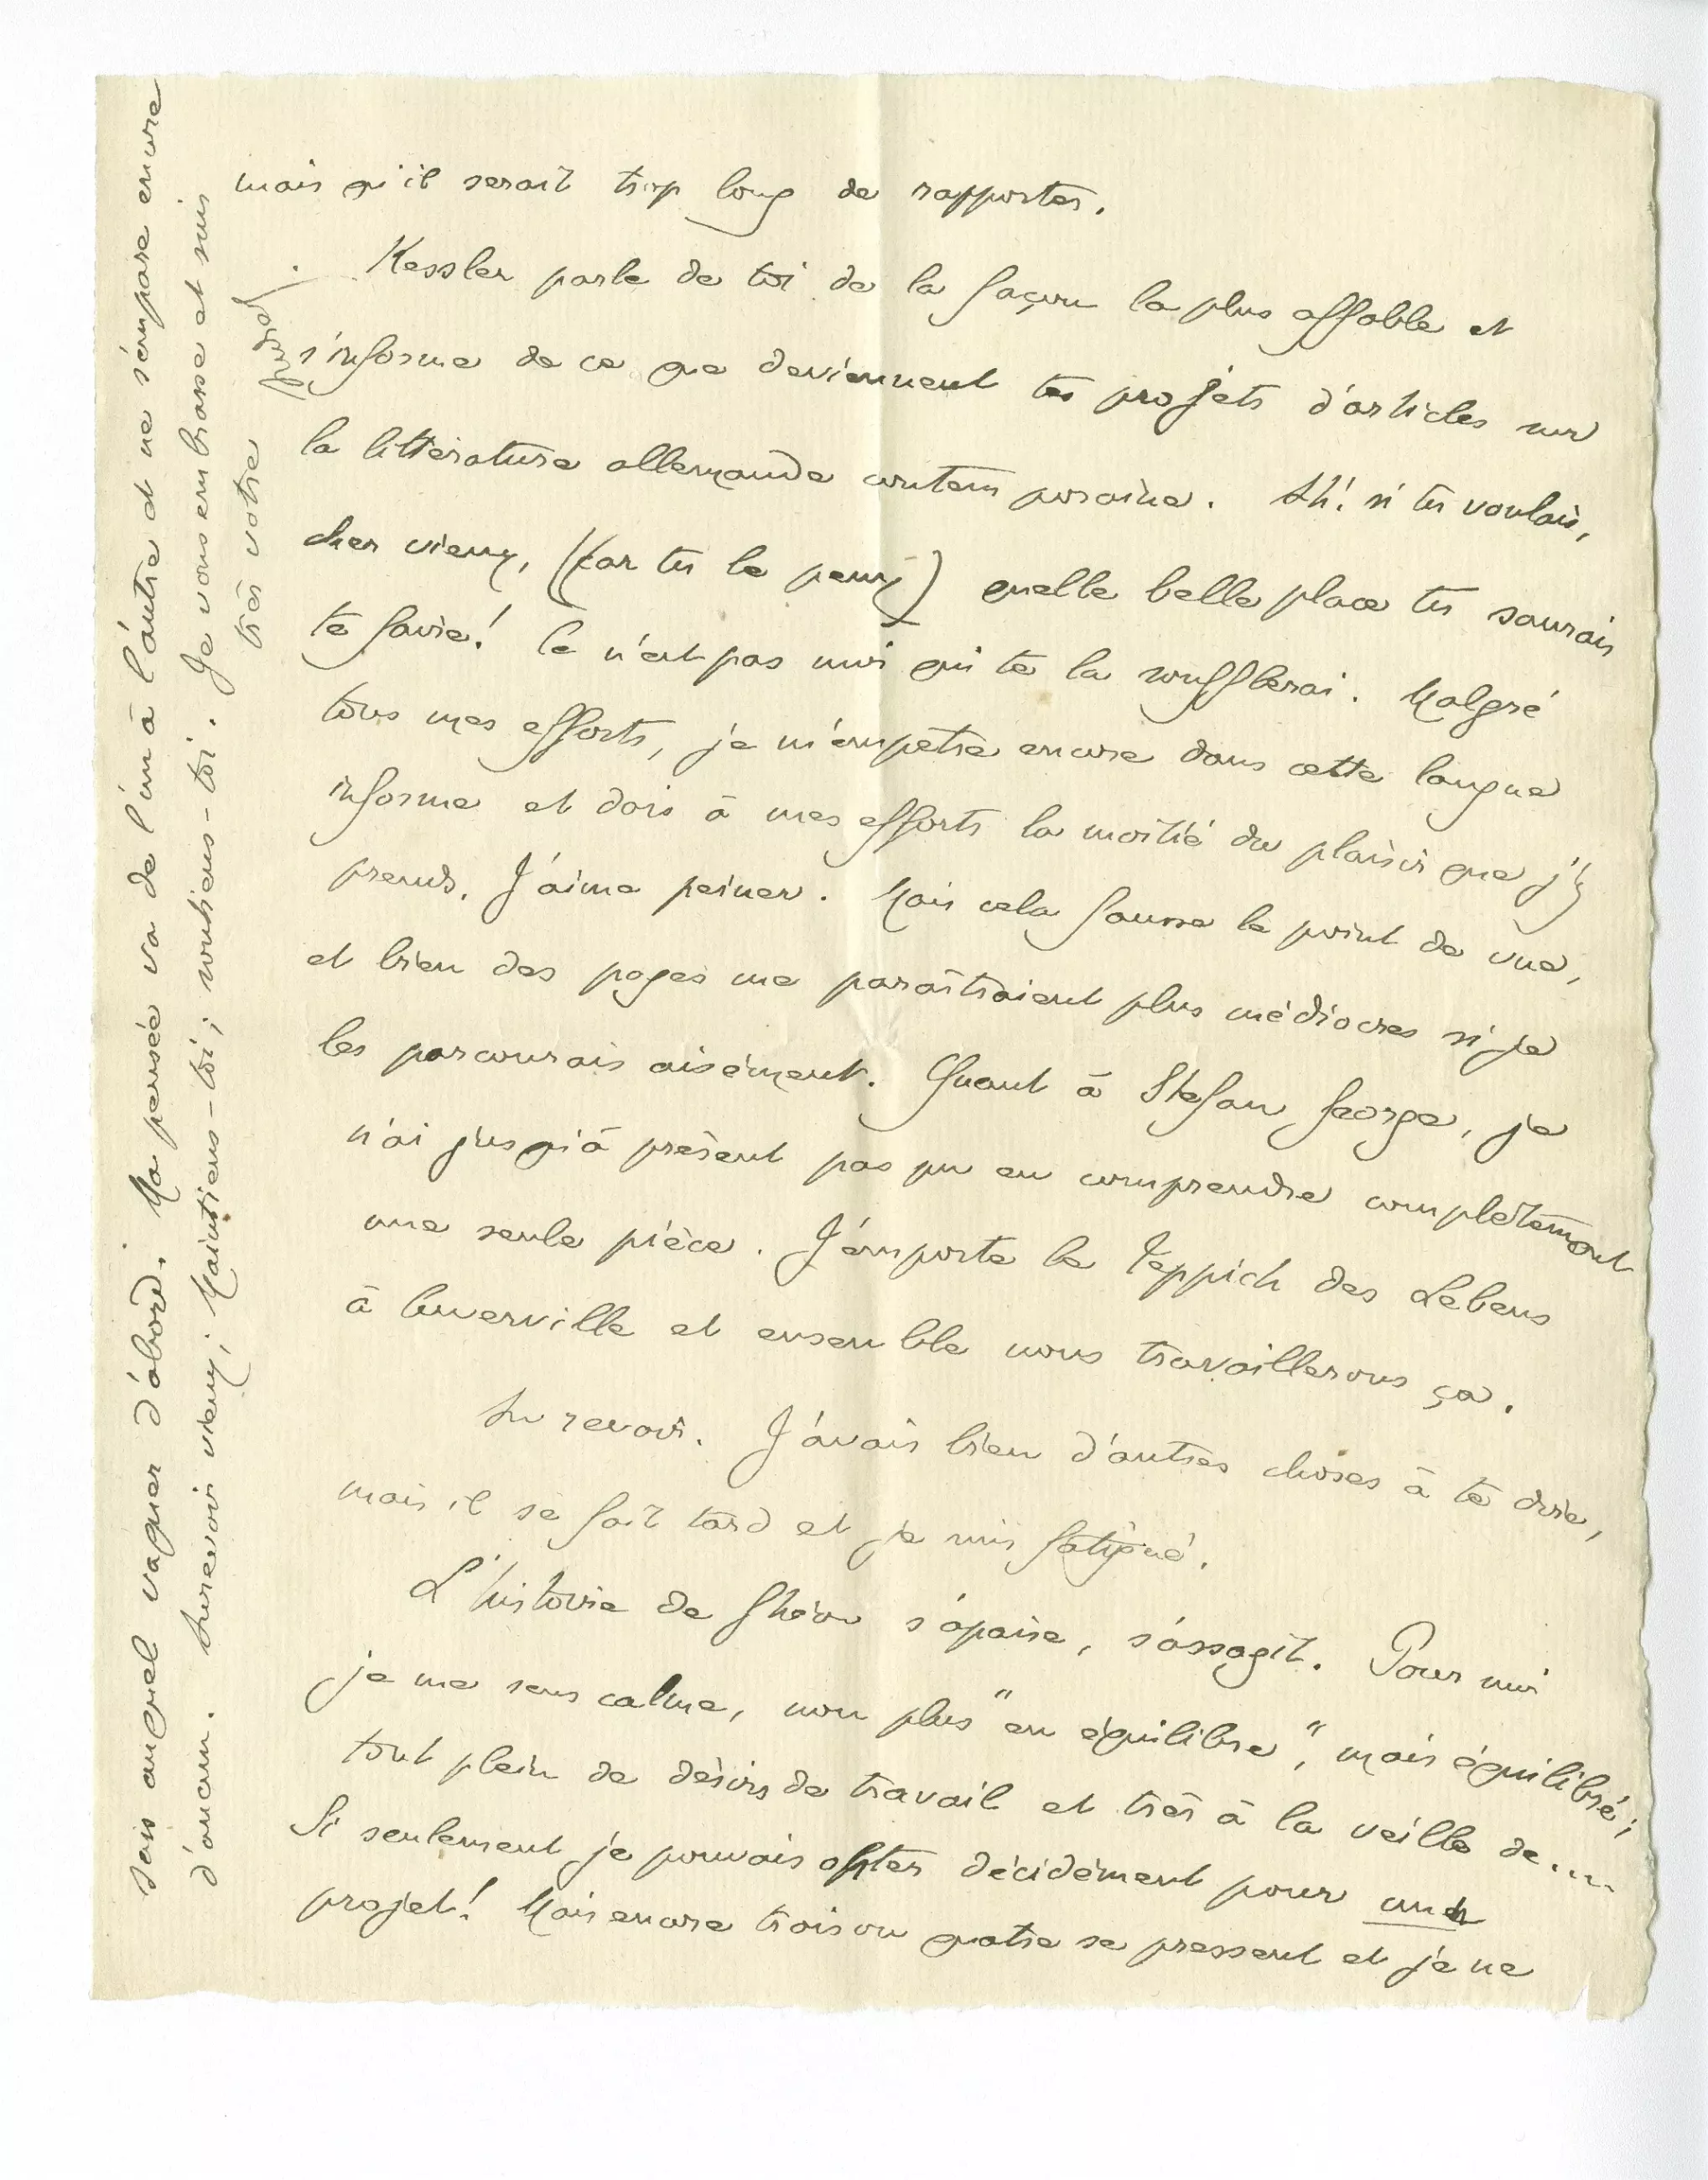 mais qu'il serait trop long de rapporter.
Kessler parle de toi de la façon la plus affable et
s'informe de ce que deviennent tes projets d'articles sur
la littérature allemande contemporaine. Ah! si tu voulais,
cher vieux, (car tu le peux) quelle belle place tu saurais
te faire! Ce n'est pas moi qui te la soufflerai. Malgré
tous mes efforts, je m'empêtre encore dans cette langue
informe et dois à mes efforts la moitié du plaisir que j'y
prends. J'aime peiner. Mais cela fausse le point de vue,
et bien des pages me paraîtraient plus médiocres si je
les parcourais aisément. Quant à Stefan George, je
n'ai jusqu'à présent pas pu en comprendre complètement
une seule pièce. J'emporte le Teppich des Lebens
à Cuverville et ensemble nous travaillerons ça.
Au revoir. J'avais bien d'autres choses à te dire,
mais il se fait tard et je suis fatigué.
L'histoire de Ghéon s'apaise, s'assagit. Pour moi
je me sens calme, non plus "en équilibre", mais équilibré;
tout plein de désirs de travail et très à la veille de....
Si seulement je pouvais opter décidément pour un
projet! Mais encore trois ou quatre se pressent et je ne
sais auquel vaquer d'abord. Ma pensée va de l'un à l'autre et ne s'empare encore
d'aucun. Aurevoir vieux; Maintiens-toi; soutiens-toi. Je vous embrasse et suis
très votre
André.